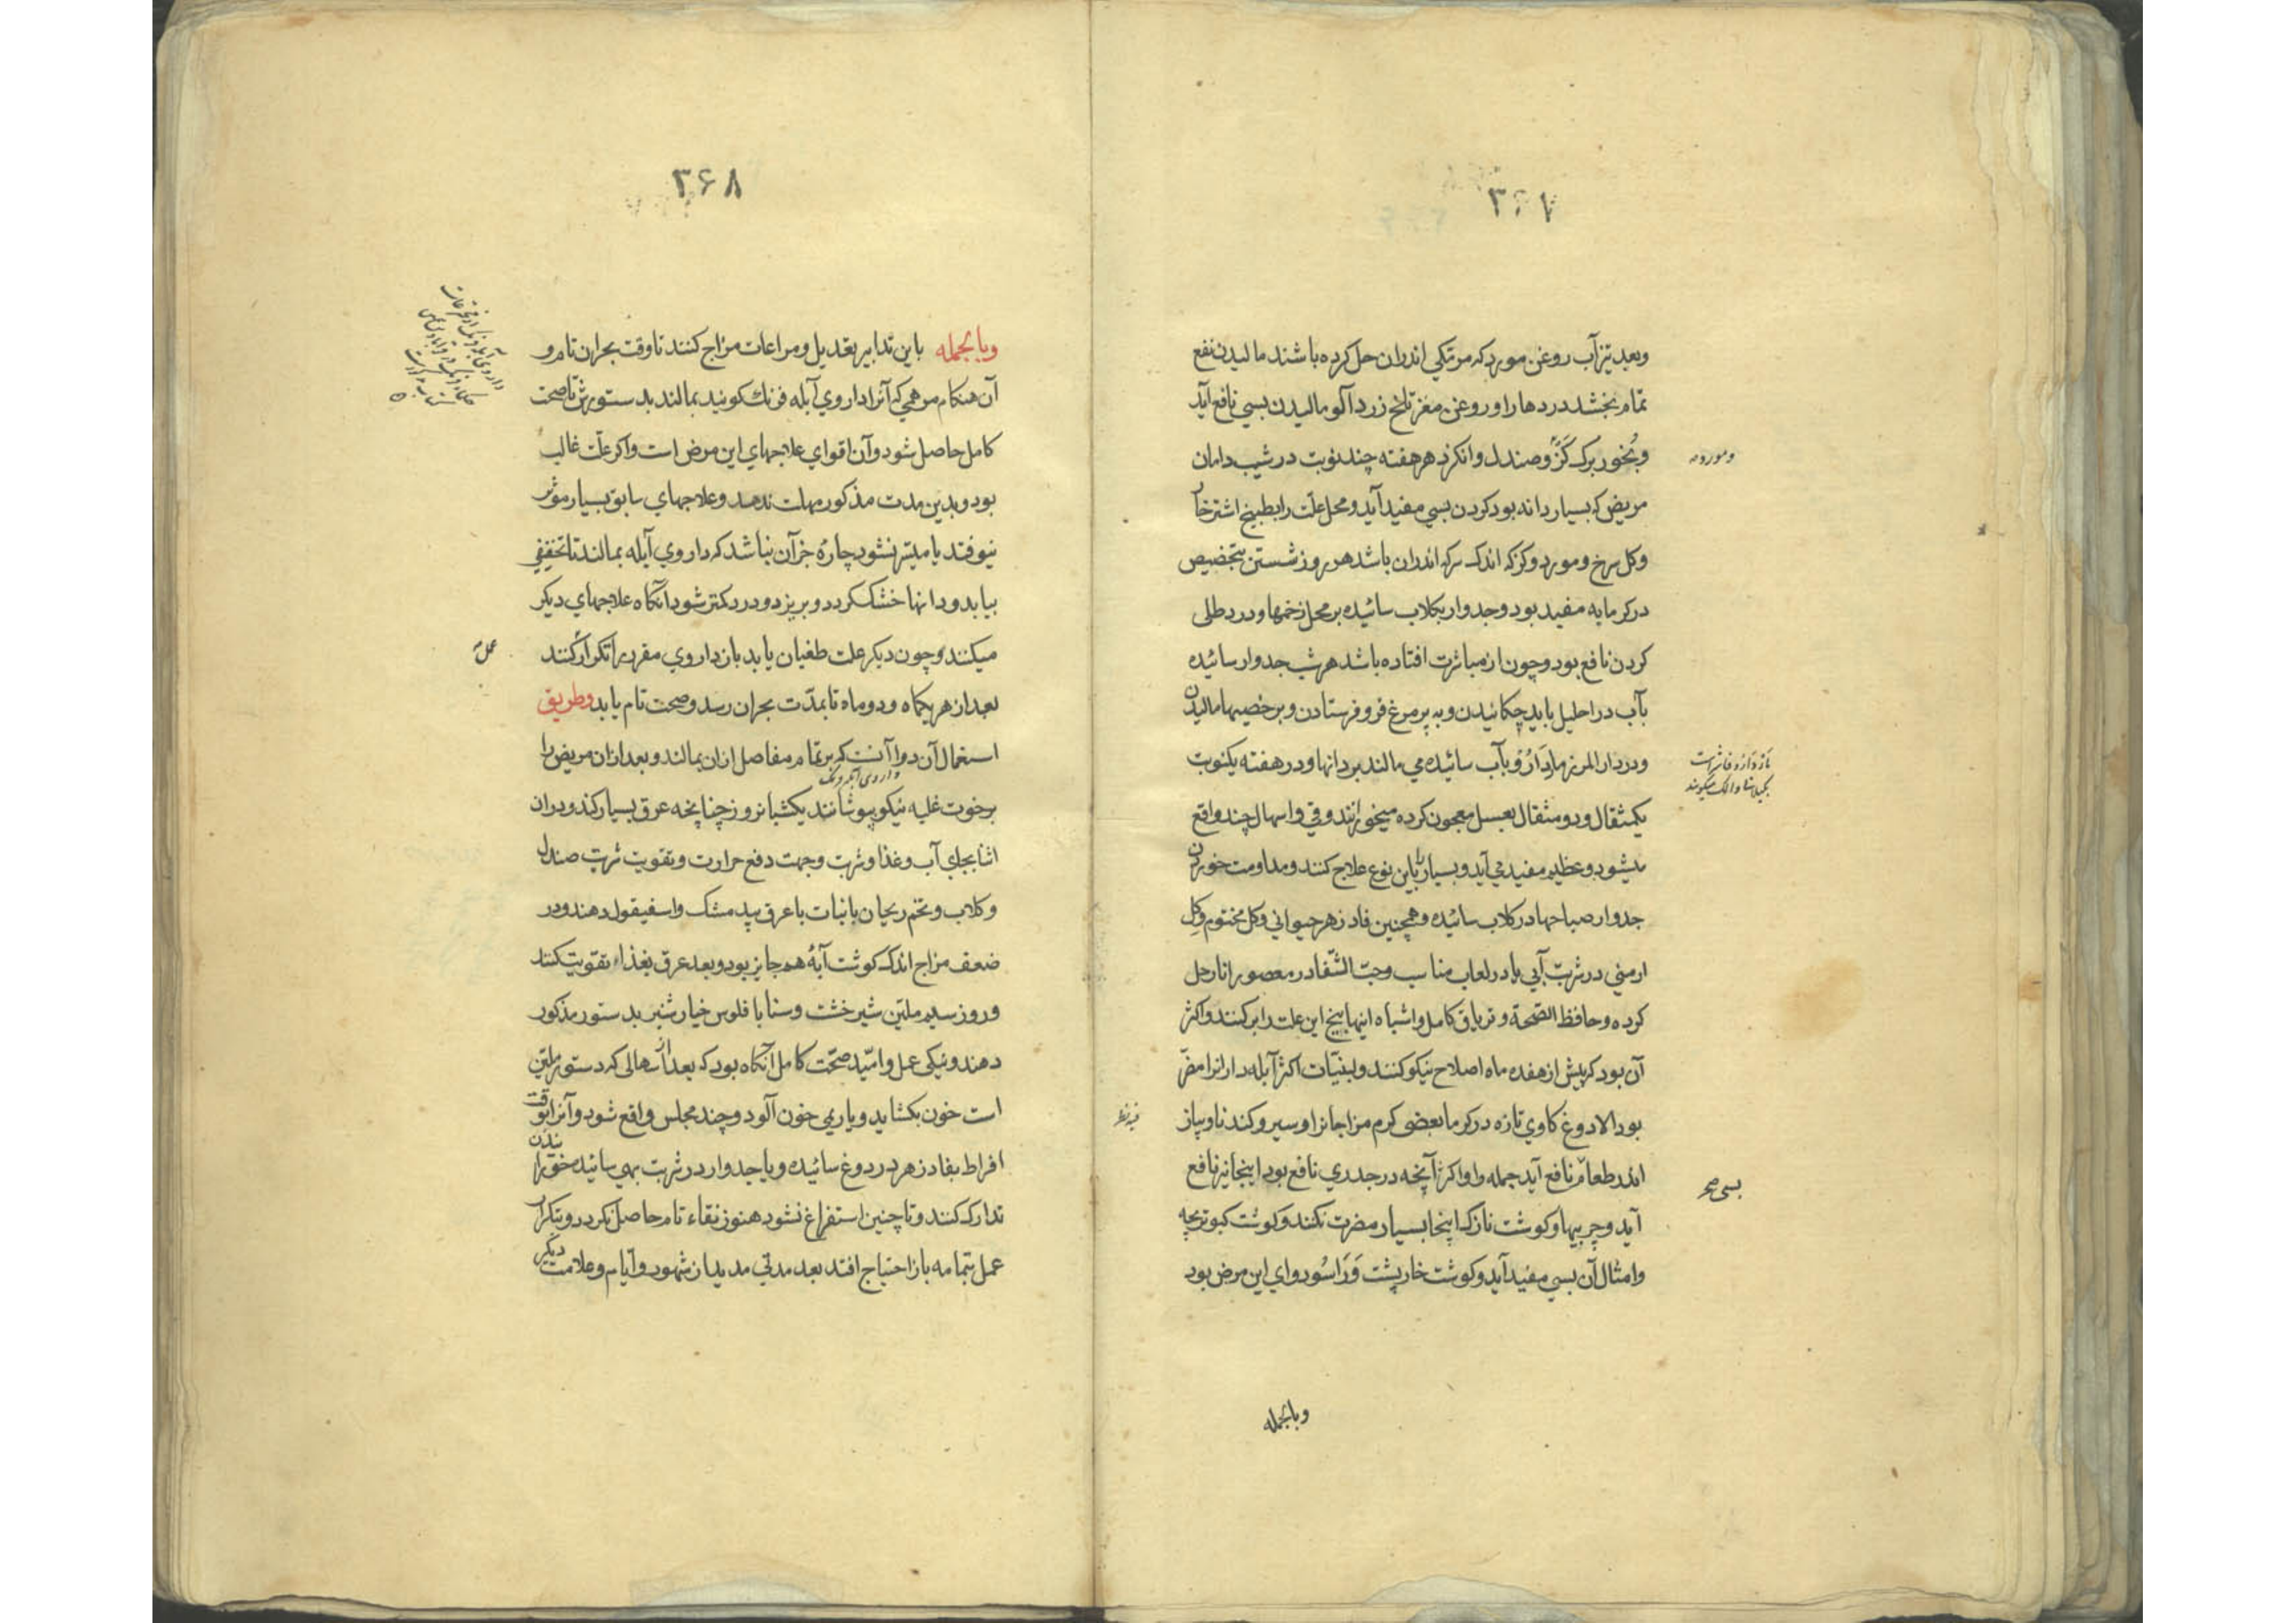 ۳۶۷
وبعد تیزآب روغن مورد که مرتکی اندران حل کرده باشند مالیدن نفع
تمام بخشد دردها را وروغن مغز تلخ زردآلو مالیدن بسی نافع آید
وبخور برک گز وصندل وانکزد هر هفته چند نوبت در شیب دامان
ومورد
مریض که بسیار دانه بود کردن بسی مفید آید ومحل علت را بطبیخ اشترخار
وکل سرخ ومورد وکز که اندک سرکه اندران باشد هر روز شستن بتخصیص
در کرمابه مفید بود وجدوار بکلاب سائیده بر محل زخمها ودرد طلی
کردن نافع بود وچون از مباشرت افتاده باشد هر شب جدوار سائیده
بآب در احلیل باید چکانیدن وبه پر مرغ فرو فرستادن وبر خصیها مالیدن
ودر دار المرز مازدارو بآب سائیده می مالند بر دانها ودر هفته یکنوبت
یکمثقال ودو مثقال بعسل معجون کرده میخورانند وقی واسهال چند واقع
میشود وعظیم مفید می آید وبسیار باین نوع علاج کنند ومداومت خوردن
جدوار صباحها در کلاب سائیده وهمچنین فادزهر حیوانی وکل مختوم وکل
ارمنی در شربت آبی یا در لعاب مناسب وحب الشفا در معصور انار حل
کرده وحافظ الصحة وتریاق کامل واشباه اینها بیخ این علت را بر کنند واکثر
آن بود که پیش از هفده ماه اصلاح نیکو کنند ولبنیات اکثر آبله داران را مضر
بود الا دوغ کاوی تازه در کرما بعضی کرم مزاجان را وسیر وکندنا وپیاز
اندر طعام نافع آید جمله را واکثر آنچه در جدری نافع بود اینجا نیز نافع
آید وچربیها وکوشت نازک اینجا بسیار مضرت نکند وکوشت کبوتر بچه
وامثال آن بسی مفید آید وکوشت خارپشت وراسو دوای این مرض بود
وبالجمله
۳۶۸
وبالجمله باین تدابیر تعدیل ومراعات مزاج کنند تا وقت بحران تام و
آن هنکام مرهمی که آنرا داروی آبله فرنک کویند بمالند بدستورش تا صحت
کامل حاصل شود وآن اقوای علاجهای این مرض است واکر علت غالب
بود وبدین مدت مذکور مهلت ندهد وعلاجهای سابق بسیار موثر
نیوفتد یا میسر نشود چاره جز آن نباشد که داروی آبله بمالند تا تخفیفی
بیابد ودانها خشک کردد وبریزد ودرد کمتر شود آنکاه علاجهای دیکر
میکنند وچون دیکر علت طغیان یابد بان داروی مقرر را تکرار کنند
عمل
بعد از هر یکماه ودو ماه تا بمدت بحران رسد وصحت تام یابد وطریق
استعمال آن دوا آنست که بر تمام مفاصل ازان بمالند وبعد ازان مریض را
برخوت غلیه نیکو بپوشانند یکشبانروز چنانچه عرق بسیار کند ودران
اثنا بجای آب وغذا وشربت وجهت دفع حرارت وتقویت شربت صندل
وکلاب وتخم ریحان با نبات با عرق بید مشک واسفیقول دهند ودر
ضعف مزاج اندک کوشت آبه هم جایز بود وبعد عرق بغذاء تقویت کنند
وروز سیم ملین شیرخشت وسنا با فلوس خیارشنبر بدستور مذکور
دهند ونیکی عمل وامید صحت کامل آنکاه بود که بعد ازان اسهالی که دستور ملین
است خون بکشاید ویا ریمی خون آلود وچند مجلس واقع شود وآنرا بوقت
افراط بفادزهر در دوغ سائیده ویا جدوار در شربت بهی سائیده خورانیدن
تدارک کنند وتا چنین استفراغ نشود هنوز نقاء تام حاصل نکردد وبتکرار
عمل بتمامه باز احتیاج افتد بعد مدتی مدید از شهور وایام وعلامت دیکر